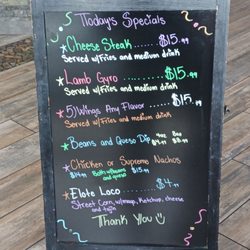 Today's Specials
Cheese Steak $15.99
Served w/Fries and medium drink
Lamb Gyro $15.99
Served w/Fries and medium drink
5) Wings Any Flavor $15.99
Served w/Fries and medium drink
Beans and Queso Dip
Chicken or Supreme Nachos
Elote Loco $4.
Street Corn, w/mayo, Ketchup, cheese
and tajin
Thank You